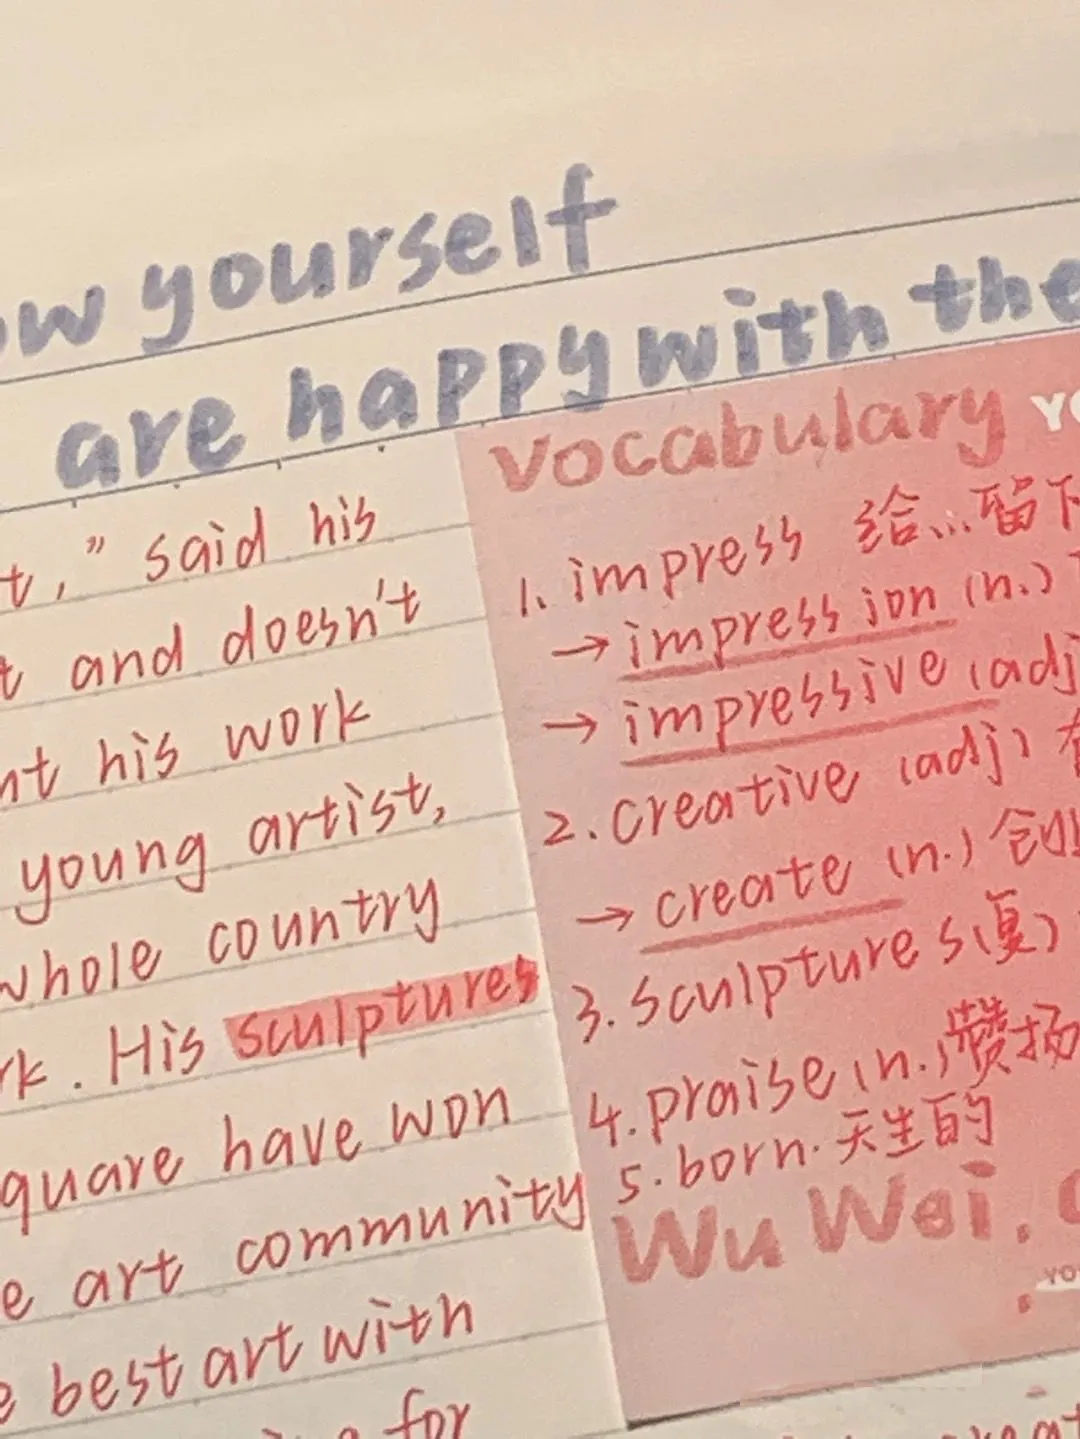 yourself
are happy with the
," said his
and doesn't
his work
young artist,
whole country
. His sculptures
have won
art community
best art with
for
Vocabulary
1. impress 给...留下
→ impression (n.)
→ impressive (adj
2. creative (adj)
→ create (n.) 创业
3. sculptures (复)
4. praise (n.) 赞扬
5. born. 天生的
Wu Wei.